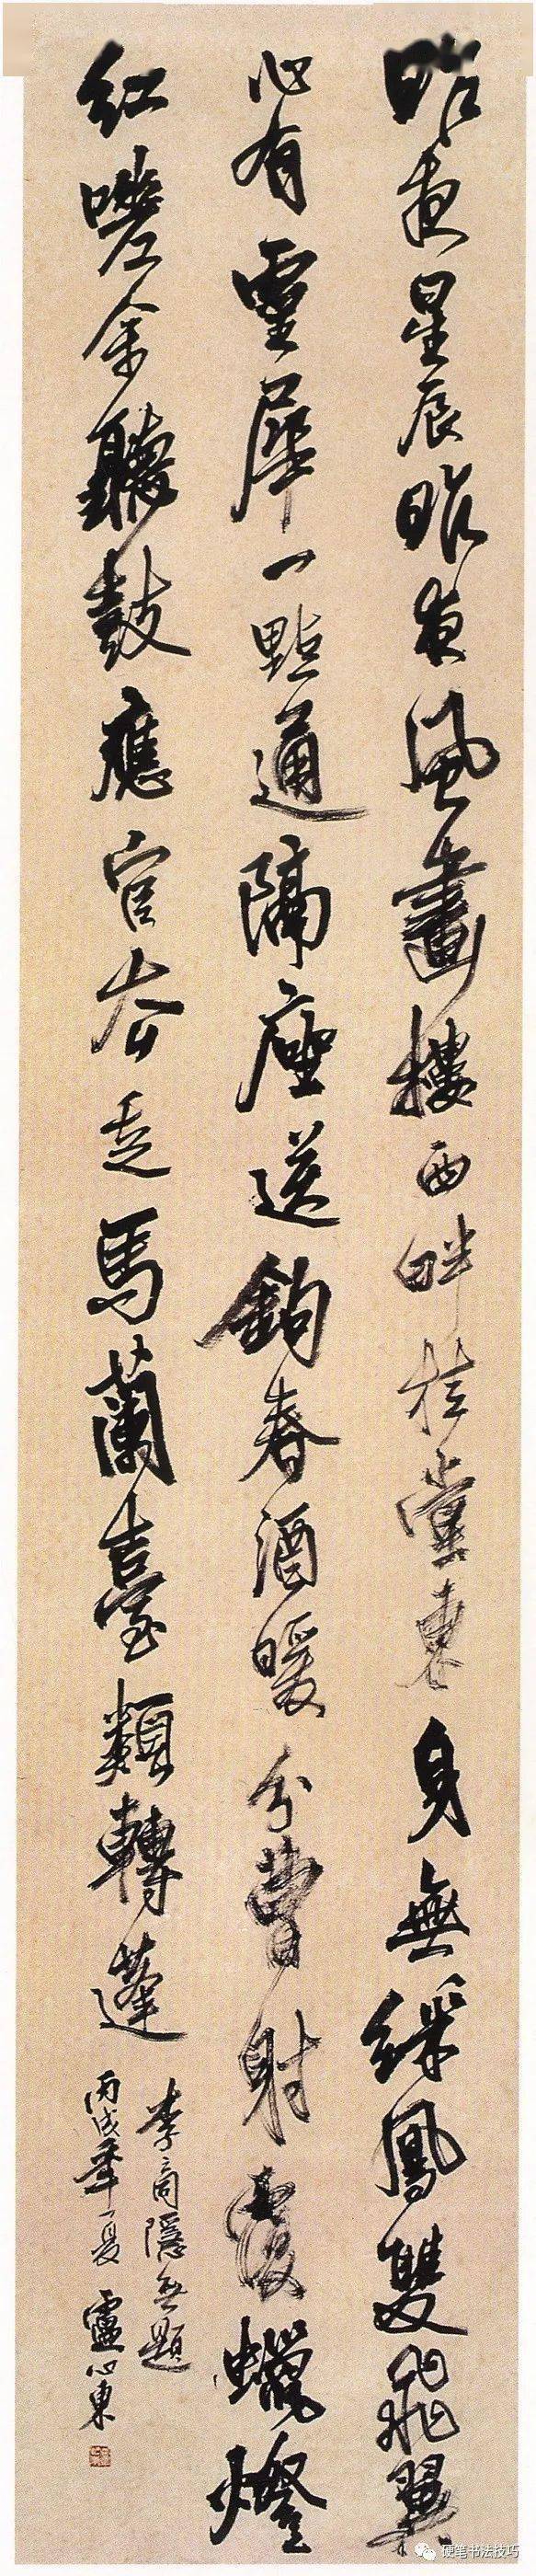 昨夜星辰昨夜風畫樓西畔桂堂東身無綵鳳雙飛翼
心有靈犀一點通隔座送鈎春酒暖分曹射覆蠟燈
紅嗟余聽鼓應官去走馬蘭臺類轉蓬
李商隱無題
丙戌年夏盧心東
硬笔书法技巧